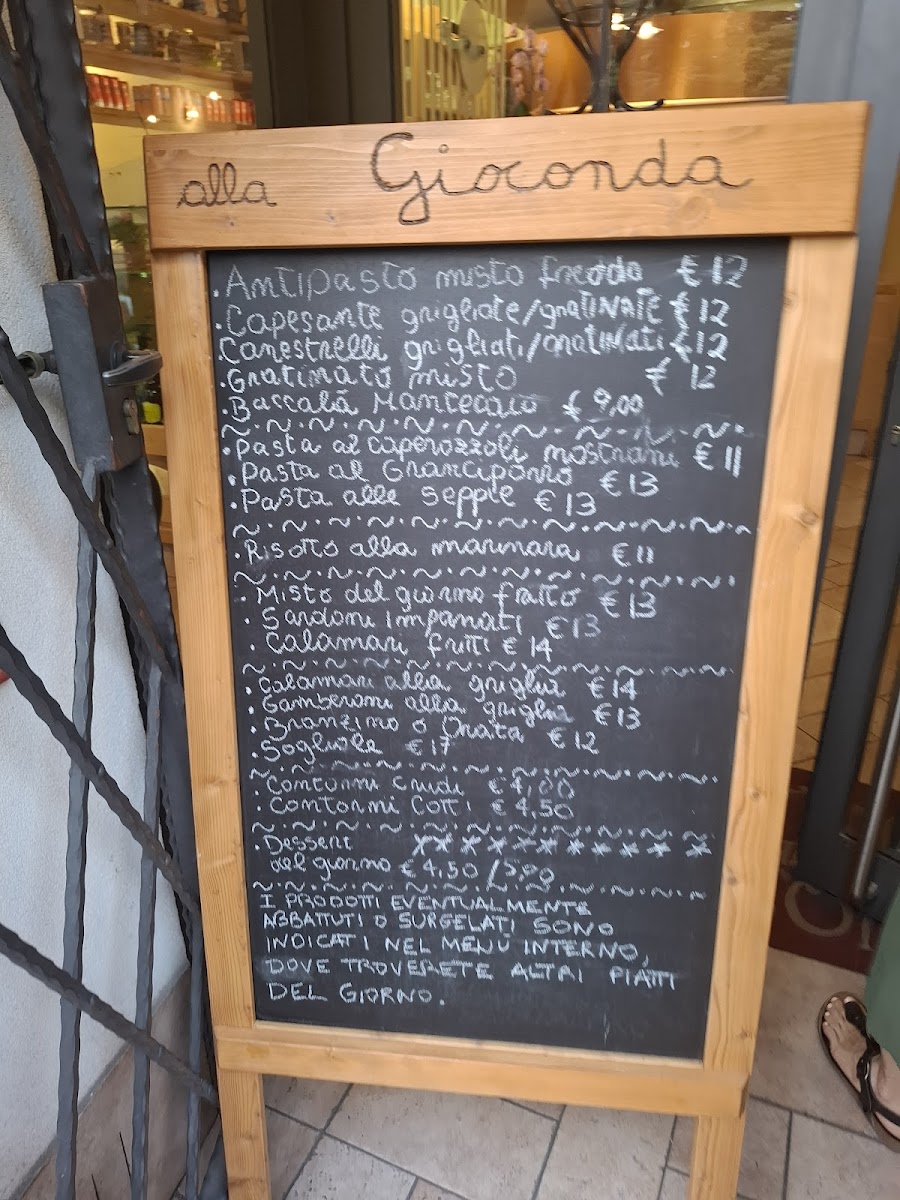 alla Gioconda
. Antipasto misto freddo € 12
. Capesante grigliate/gratinate € 12
. Canestrelli grigliati/gratinati € 12
. Gratinato misto € 12
. Baccalà Mantecato € 9,00
~.~.~.~.~.~.~.~.~.~.
. Pasta ai caperozzoli nostrani € 11
. Pasta al Granciporro € 13
. Pasta alle seppie € 13
~.~.~.~.~.~.~.~.~.~.
. Risotto alla marinara € 11
~.~.~.~.~.~.~.~.~.~.
. Misto del giorno fritto € 13
. Sardoni Impanati € 13
. Calamari fritti € 14
~.~.~.~.~.~.~.~.~.~.
. Calamari alla griglia € 14
. Gamberoni alla griglia € 13
. Branzino o Orata € 12
. Sogliole € 17
~.~.~.~.~.~.~.~.~.~.
. Contorni Crudi € 4,00
. Contorni Cotti € 4,50
~.~.~.~.~.~.~.~.~.~.
. Dessert ***********
del giorno € 4,50 /5,00
~.~.~.~.~.~.~.~.~.~.
I PRODOTTI EVENTUALMENTE
ABBATTUTI O SURGELATI SONO
INDICATI NEL MENÙ INTERNO,
DOVE TROVERETE ALTRI PIATTI
DEL GIORNO.